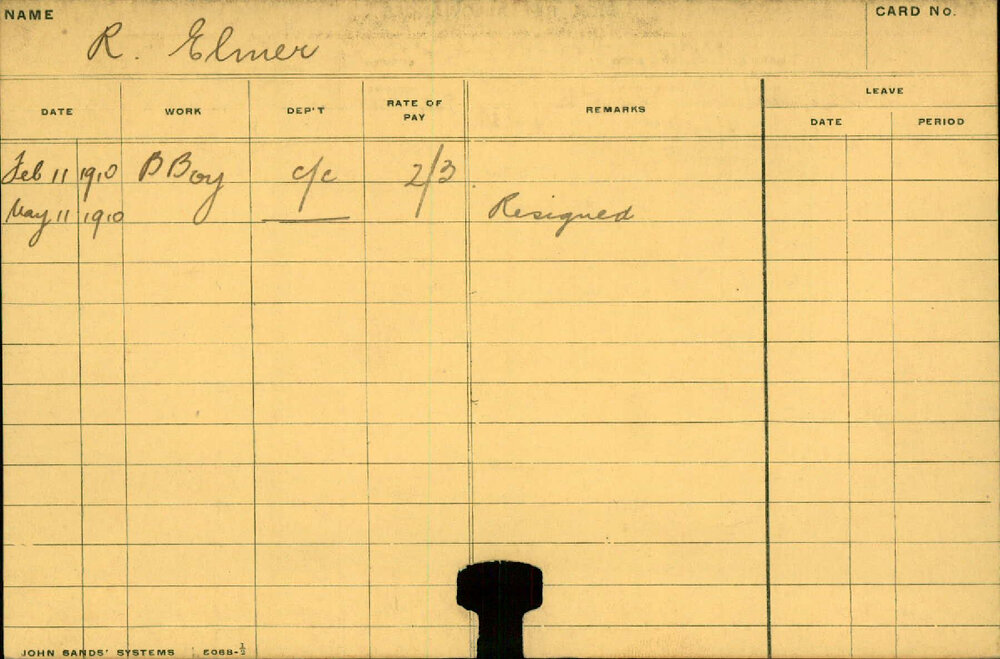 NAME
R. Elmer
CARD No.
DATE WORK DEP'T RATE OF PAY REMARKS LEAVE
DATE PERIOD
Feb 11 1910 B Boy c/c 2/3
May 11 1910 Resigned
JOHN SANDS' SYSTEMS